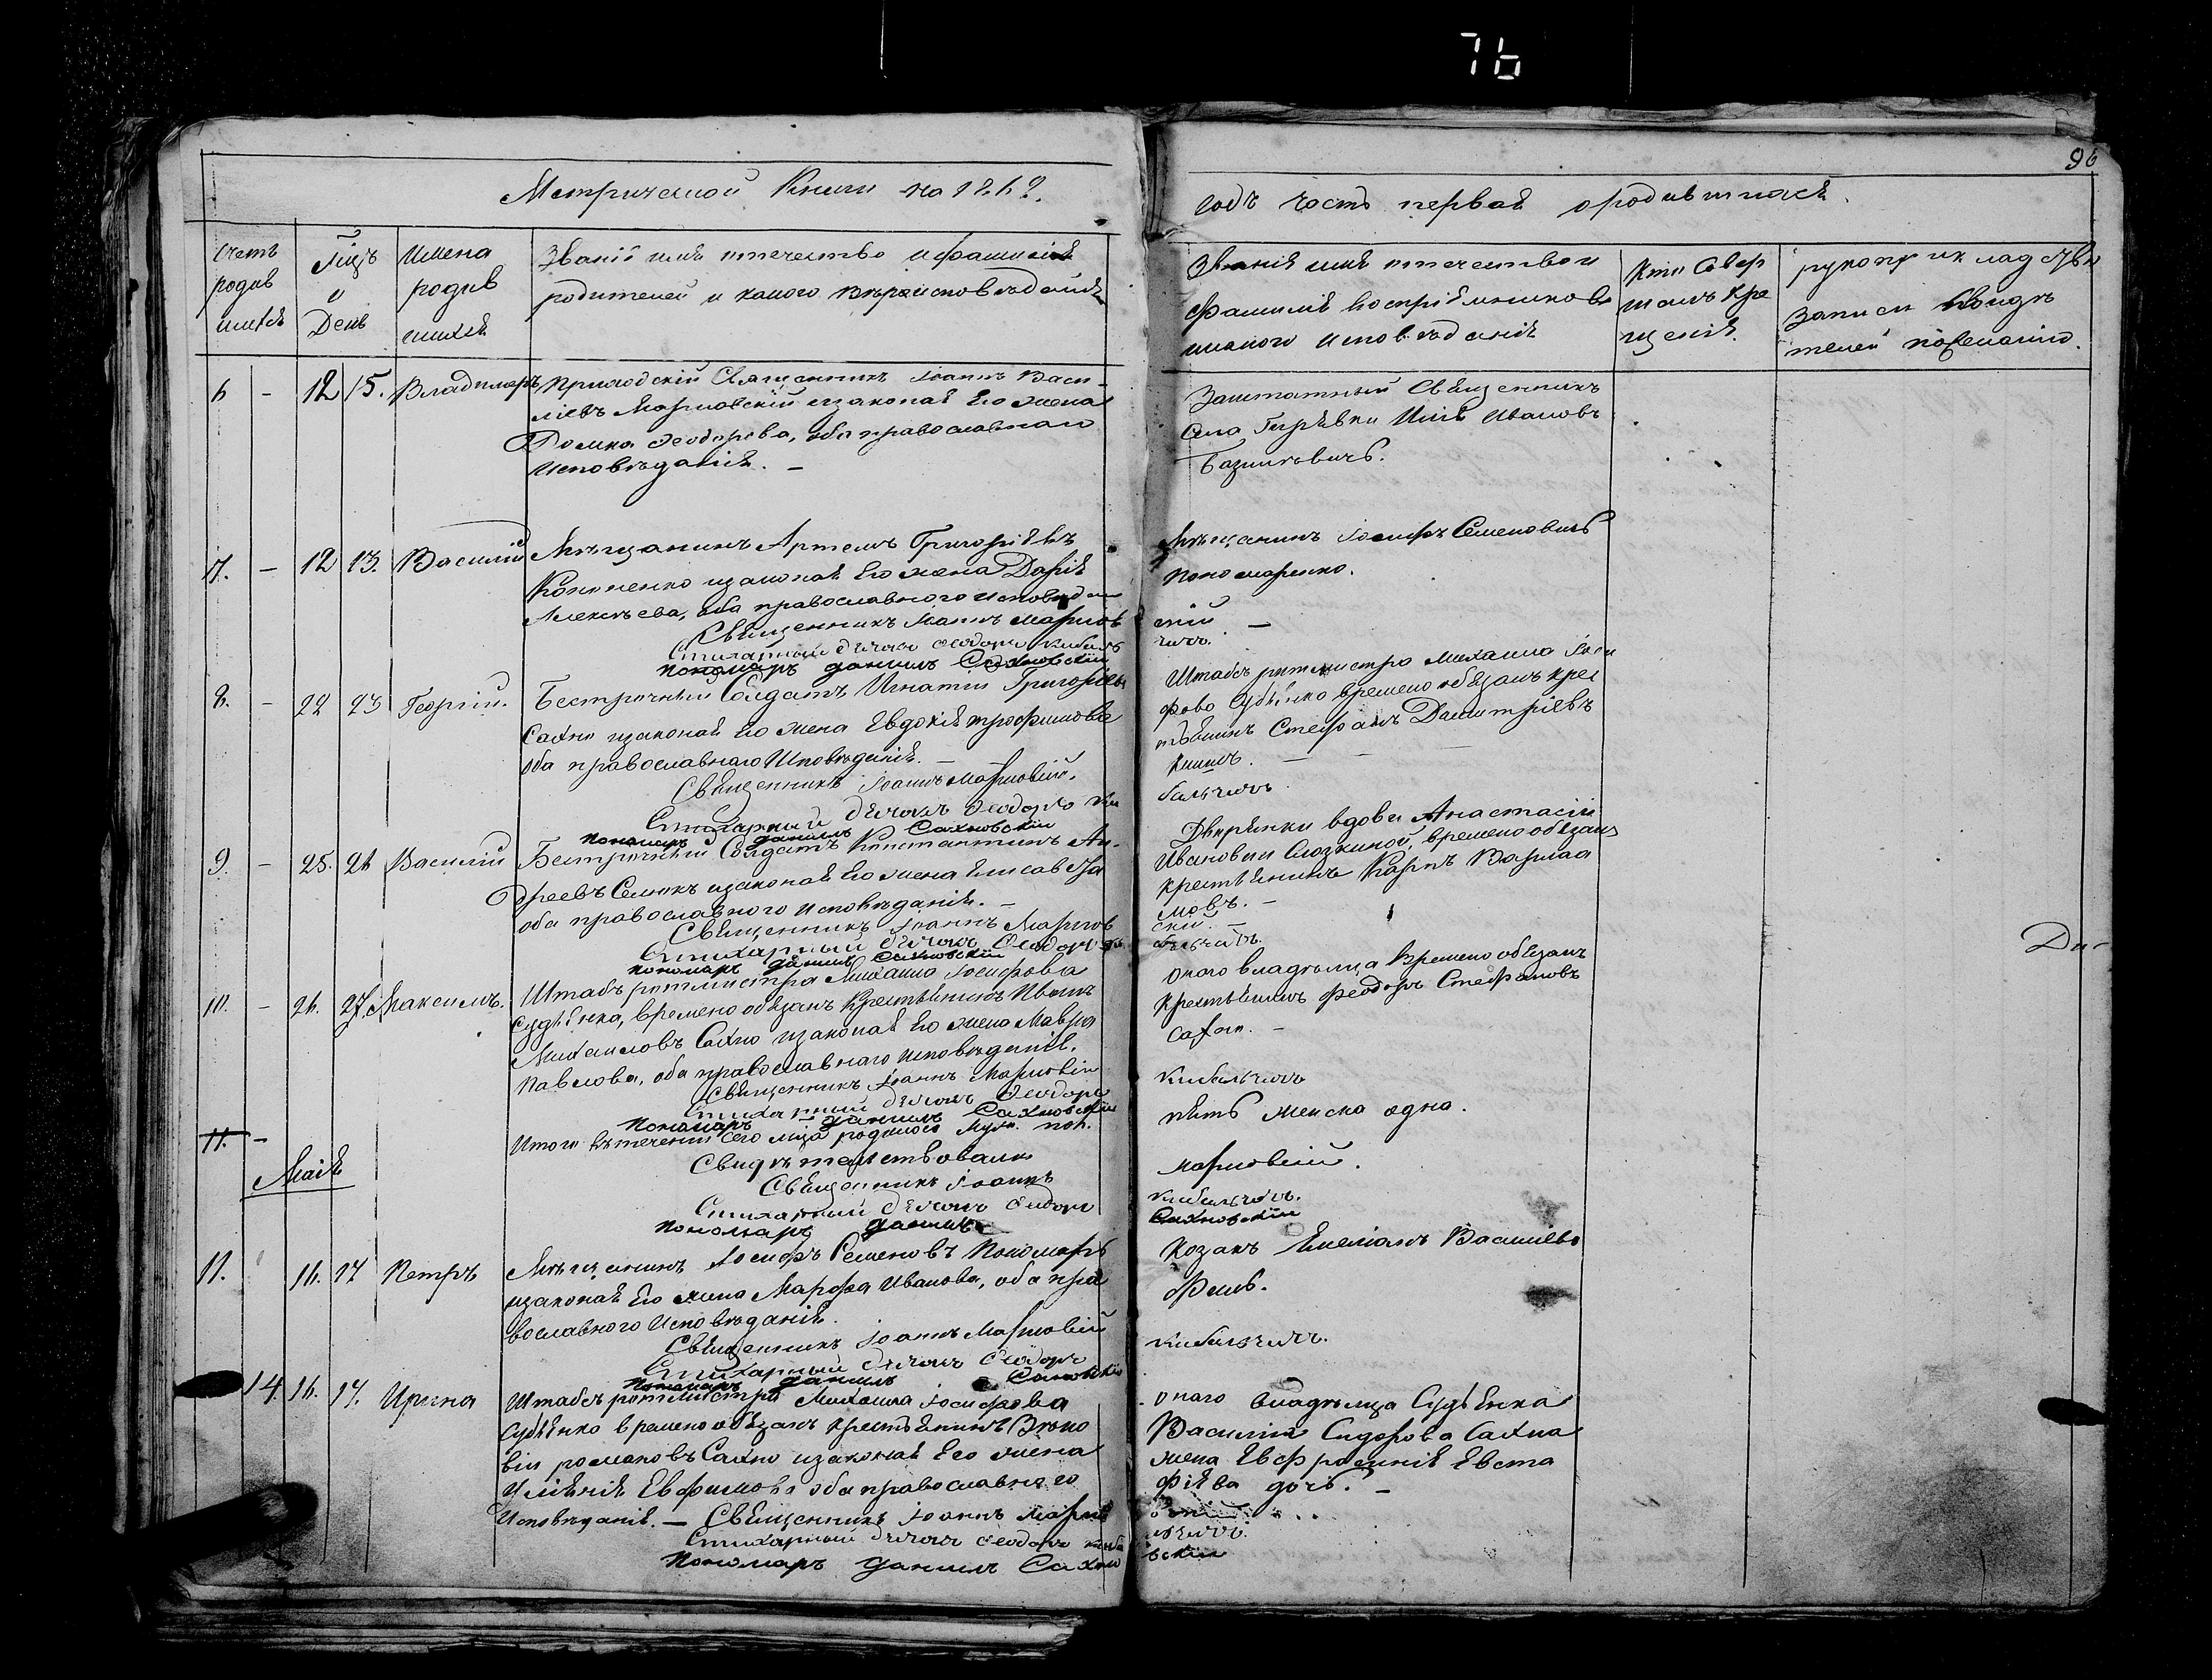 76
96
Метрической Книги на 1862.
годъ часть первая о родившихся.
Счетъ родив шихся
Мѣцъ и День
Имена родив шихся
Званіе имя отечество и фамилія
родителей и какого вѣроисповѣданія
Званія имя отечество и
фамилія воспріѣмниковъ
и какого исповѣданія
Кто Совер
шалъ кре
щеніе.
рукопри кладство
записи свидѣ
телей по желанію.
6 - 12 15. Владимеръ
Приходскій Священникъ Іоаннъ Васи-
ліевъ Марковскій изаконая Его жена
Домна Ѳеодорова, оба православнаго
Исповѣданія. -
Заштатный Священникъ
Села Илія Ивановъ
7. - 12 13. Василій
Мѣщанинъ Артемъ Григоріевъ
изаконая Его жена Дарія
Алексѣева, оба православного исповѣдані
Священникъ Іоаннъ Марков
Стихарный дячокъ Ѳеодоръ Кибаль
пономаръ даниилъ Сахновскій
Мѣщанинъ Іосифъ Семеновичъ
Пономаренко.
скій. -
чичъ.
8. - 22 23 Георгій.
Безсрочный Солдатъ Игнатій Григорьев
Сахно изаконая Его жена Евдокія Трофимова
оба православнаго Исповѣданія. -
Священникъ Іоаннъ Марковскій.
Стихарный дячокъ Ѳеодоръ Ки
пономаръ даниилъ Сахновскій
Штабсъ ротмистра Михаила Іоси
фова Судѣнко времено обязанъ крес
тьянинъ Стефанъ Дмитріевъ
бальчичъ
9. - 25. 26 Василій
Безсрочный Солдатъ Константинъ Ан-
дреевъ изаконая Его жена Елисавета
оба православного исповѣданія. -
Священникъ Іоаннъ Марков
Стихарный дячокъ Ѳеодоръ Ки
пономаръ даниилъ Сахновскій
Дворянки вдовы Анастасіи
Ивановны времено обязан
крестьянинъ Карпъ Варлаа
мовъ. -
скій. -
бальчичъ.
10. - 26. 27. Максимъ.
Штабъ ротмистра Михаила Іосифова
Судѣнка, времено обязанъ Крестьянинъ Иванъ
Михаиловъ Сахно изаконая Его жена Мавра
Павлова, оба православнаго исповѣданія.
Священникъ Іоаннъ Марковскій
Стихарный дячокъ Ѳеодоръ
Пономаръ даниилъ Сахновскій
оного владѣльца Времено обязанъ
Крестьянинъ Феодоръ Стефановъ
Сахно. -
Кибальчичъ
11. -
Итого въ теченіи сего мѣца родилось муж. пол.
пять женска одна.
Свидѣтельствовали
Священникъ Іоаннъ
Марковскій.
Стихарный дячокъ Ѳеодоръ
Кибальчичъ.
Пономаръ даниилъ
Сахновскій
Маія
11. 16. 17 Петръ
Мѣщанинъ Іосифъ Семеновъ Пономарь
изаконая Его жена Марфа Иванова, оба пра
вославного Исповѣданія.
Священникъ Іоаннъ Марковскій
Стихарный дячокъ Ѳеодоръ
Пономаръ даниилъ Сахновскій
Козакъ Емеліанъ Василіевъ
Кибальчичъ.
14. 16. 17. Ирина
Штабсъ ротмистра Михаила Іосифова
Судѣнко времено обязанъ крестьянинъ Зѣно
вій романовъ Сахно изаконая Его жена
Уліянія Евфимова оба православного
Исповѣданія. - Священникъ Іоаннъ Марков
Стихарный дячокъ Ѳеодоръ Киба
Пономаръ даниилъ Сахно
оного владѣльца Судѣнка
Василія Сидорова Сахна
жена Евфросинія Евста
фіева дочь. -
скій
льчичъ.
вскій